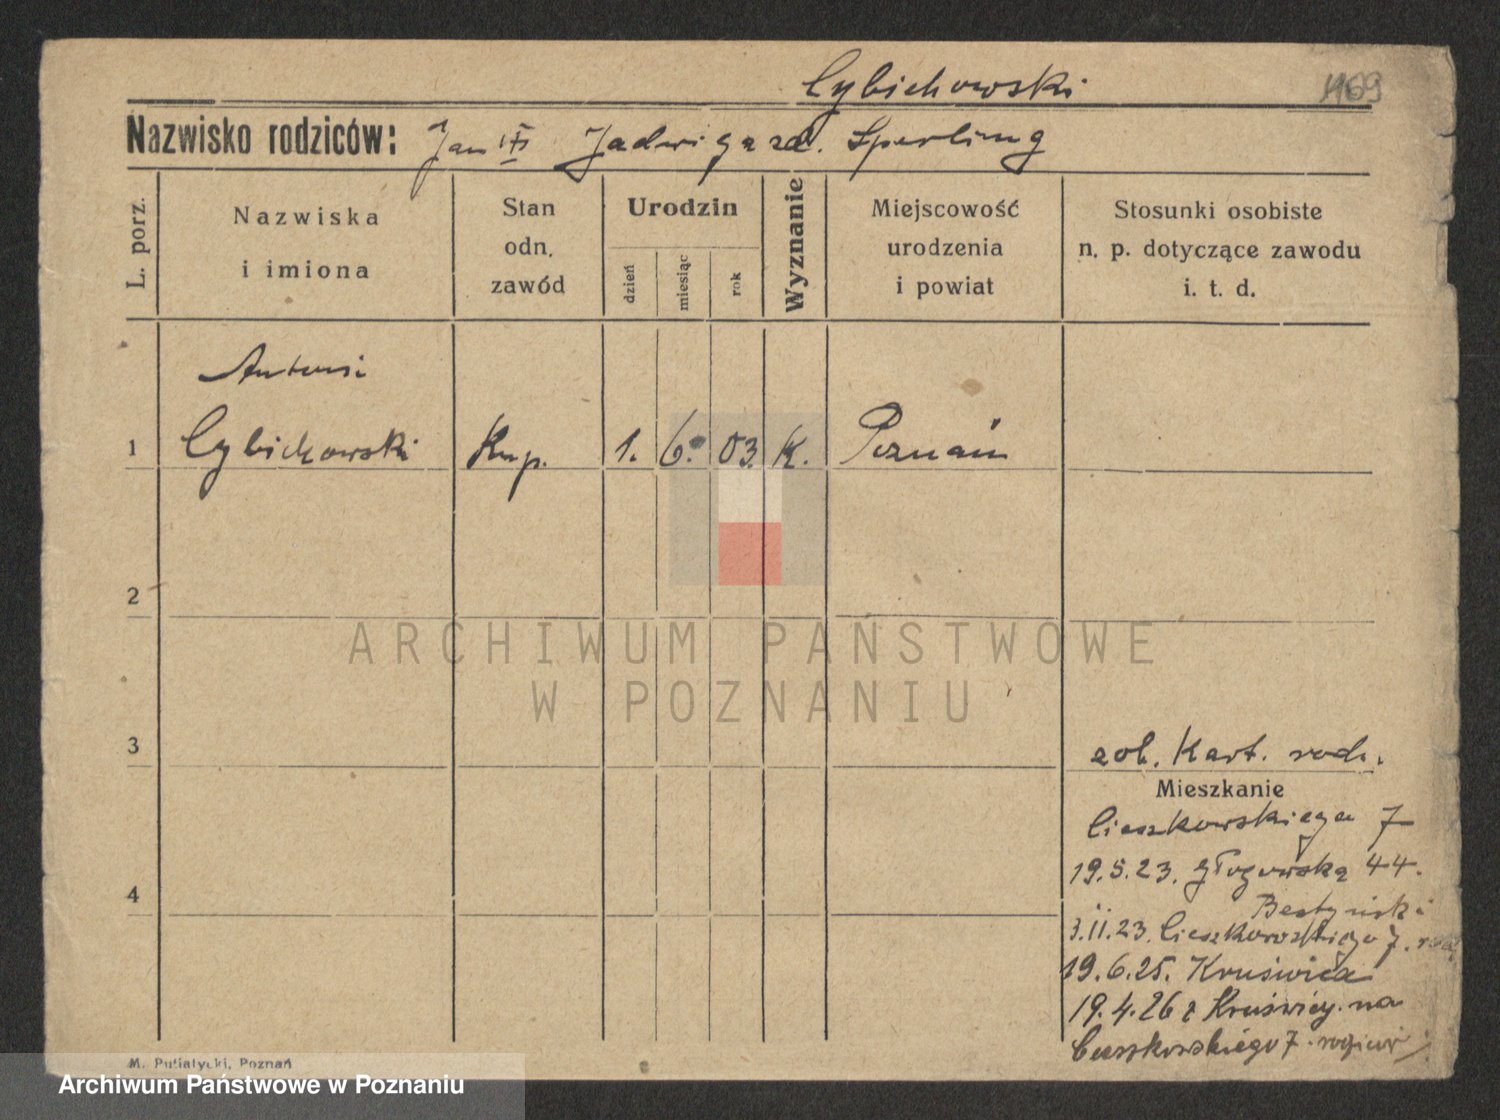 Cybichowski
1169
Nazwisko rodziców: Jan Jadwiga zd. Sperling
L. porz.
Nazwiska
i imiona
Stan
odn.
zawód
Urodzin
dzień
miesiąc
rok
Wyznanie
Miejscowość
urodzenia
i powiat
Stosunki osobiste
n. p. dotyczące zawodu
i. t. d.
Antoni
1 Cybichowski Kup. 1. 6. 03. K. Poznań
2
ARCHIWUM PAŃSTWOWE
W POZNANIU
3
zob. Kart. rodz.
Mieszkanie
Cieszkowskiego 7
19.5.23. Głogowska 44.
4
Bestyński
3.11.23. Cieszkowskiego 7.
19.6.25. Kruświca
19.4.26 z Kruświcy na
Cieszkowskiego 7.
M. Putiatycki, Poznań
Archiwum Państwowe w Poznaniu